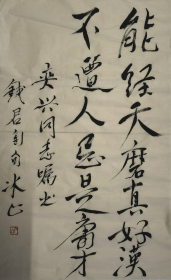 能经天磨真好汉
不遭人忌是庸才
奕兴同志嘱书
钱君匋句 冰山